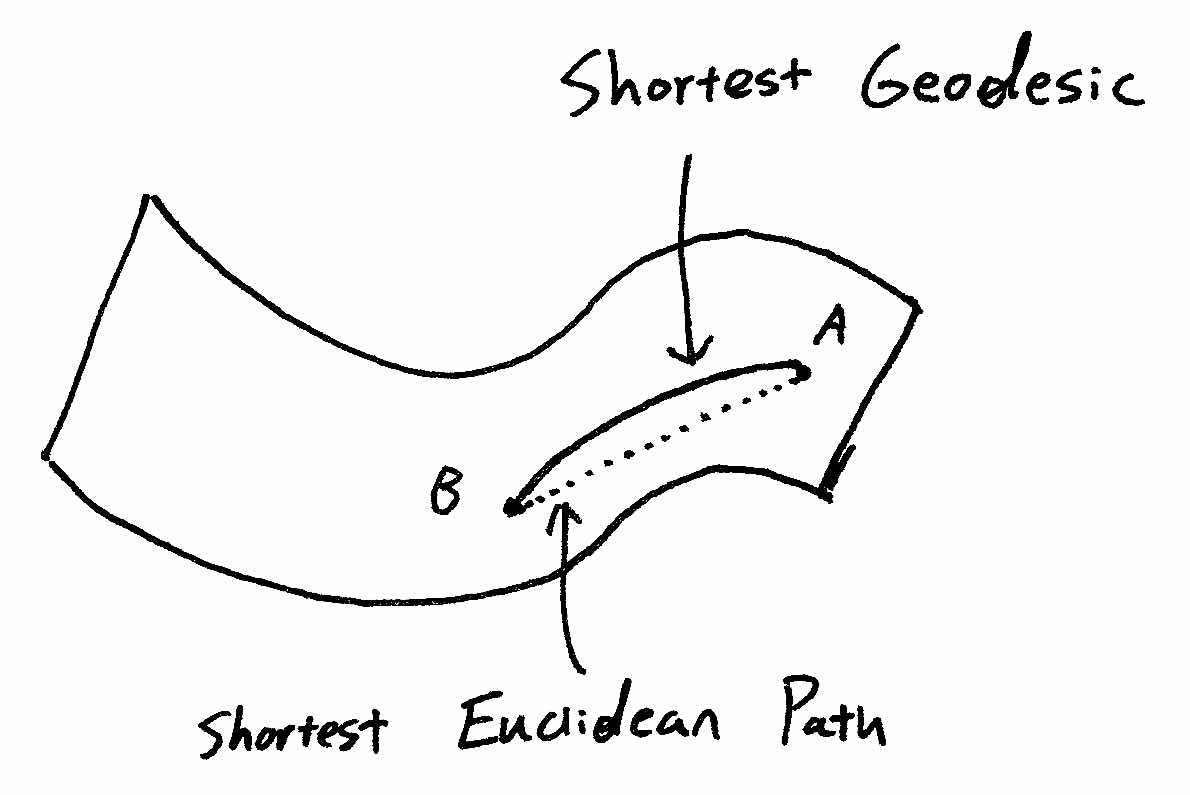 Shortest Geodesic
A
B
Shortest Euclidean Path